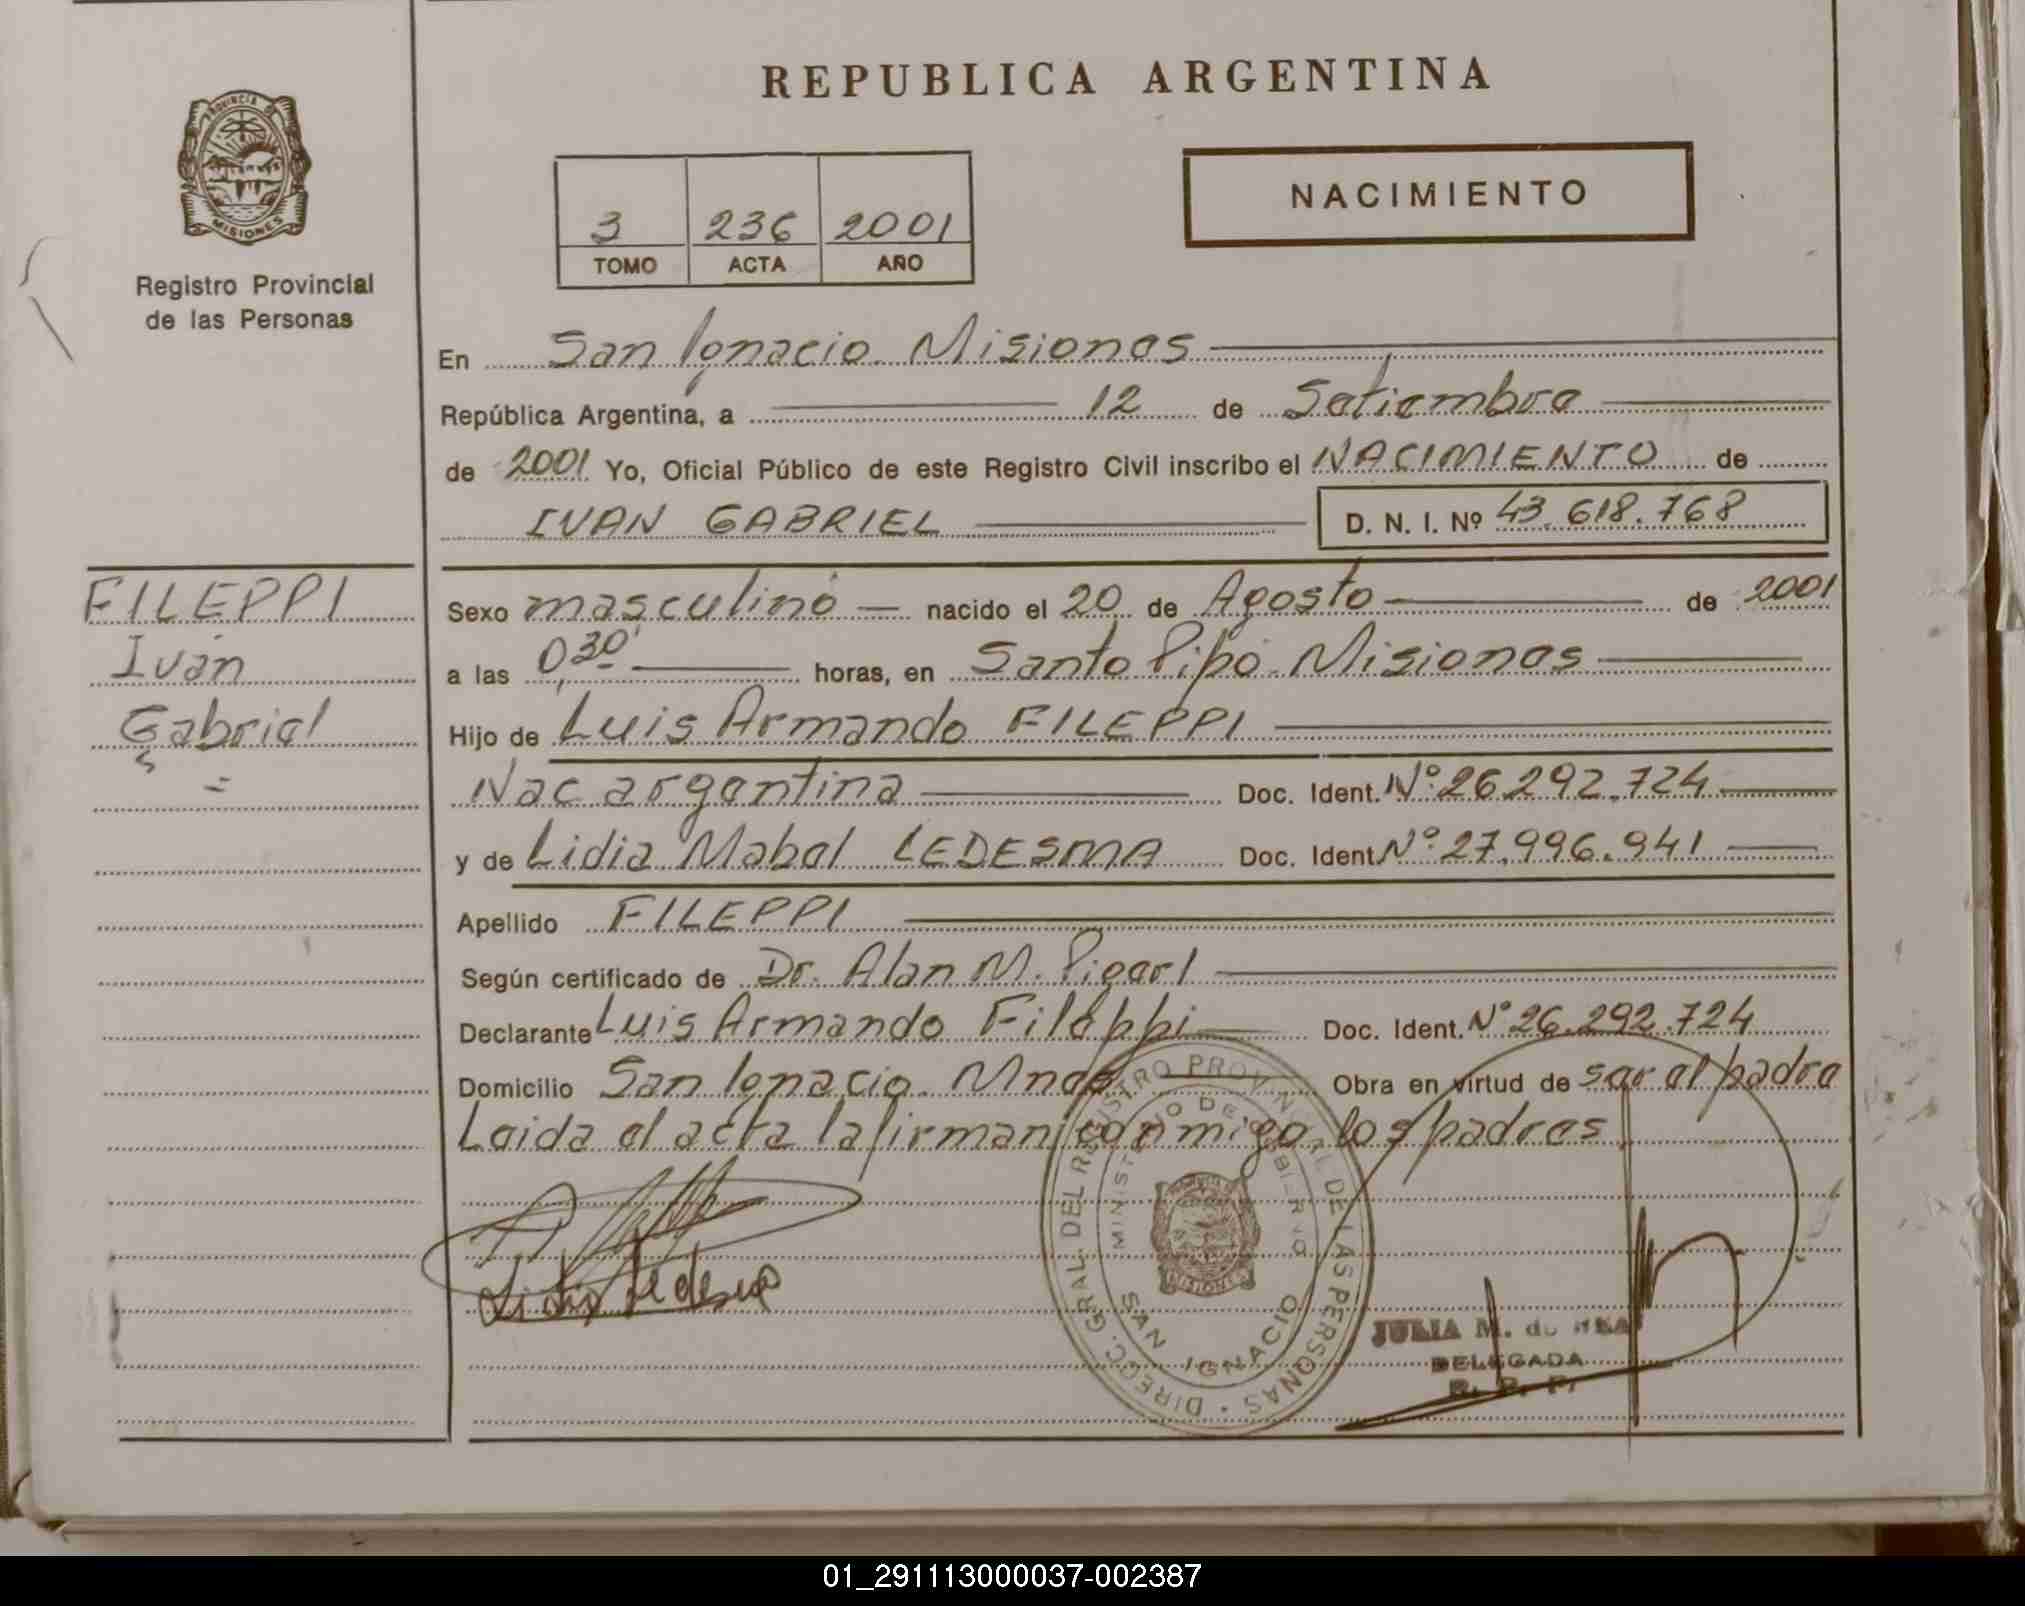 REPUBLICA ARGENTINA
PROVINCIA DE
MISIONES
Registro Provincial
de las Personas
NACIMIENTO
3 236 2001
TOMO ACTA AÑO
En San Ignacio. Misiones
República Argentina, a 12 de Setiembre
de 2001 Yo, Oficial Público de este Registro Civil inscribo el NACIMIENTO de
IVAN GABRIEL D. N. I. Nº 43.618.768
FILEPPI
Iván
Gabriel
Sexo masculino nacido el 20 de Agosto de 2001
a las 0,30 horas, en Santo Pipó. Misiones
Hijo de Luis Armando FILEPPI
Nac argentina Doc. Ident. Nº 26.292.724
y de Lidia Mabel LEDESMA Doc. Ident. Nº 27.996.941
Apellido FILEPPI
Según certificado de Dr. Alan M.
Declarante Luis Armando Fileppi Doc. Ident. Nº 26.292.724
Domicilio San Ignacio. Mnes Obra en virtud de ser el padre
Leida el acta la firman conmigo los padres
Lidia Ledesma
DIREC. GRAL. DEL REGISTRO PROVINCIAL DE LAS PERSONAS
MINISTERIO DE GOBIERNO
MISIONES
SAN IGNACIO
JULIA M. de
DELEGADA
R. P. P.
01_291113000037-002387